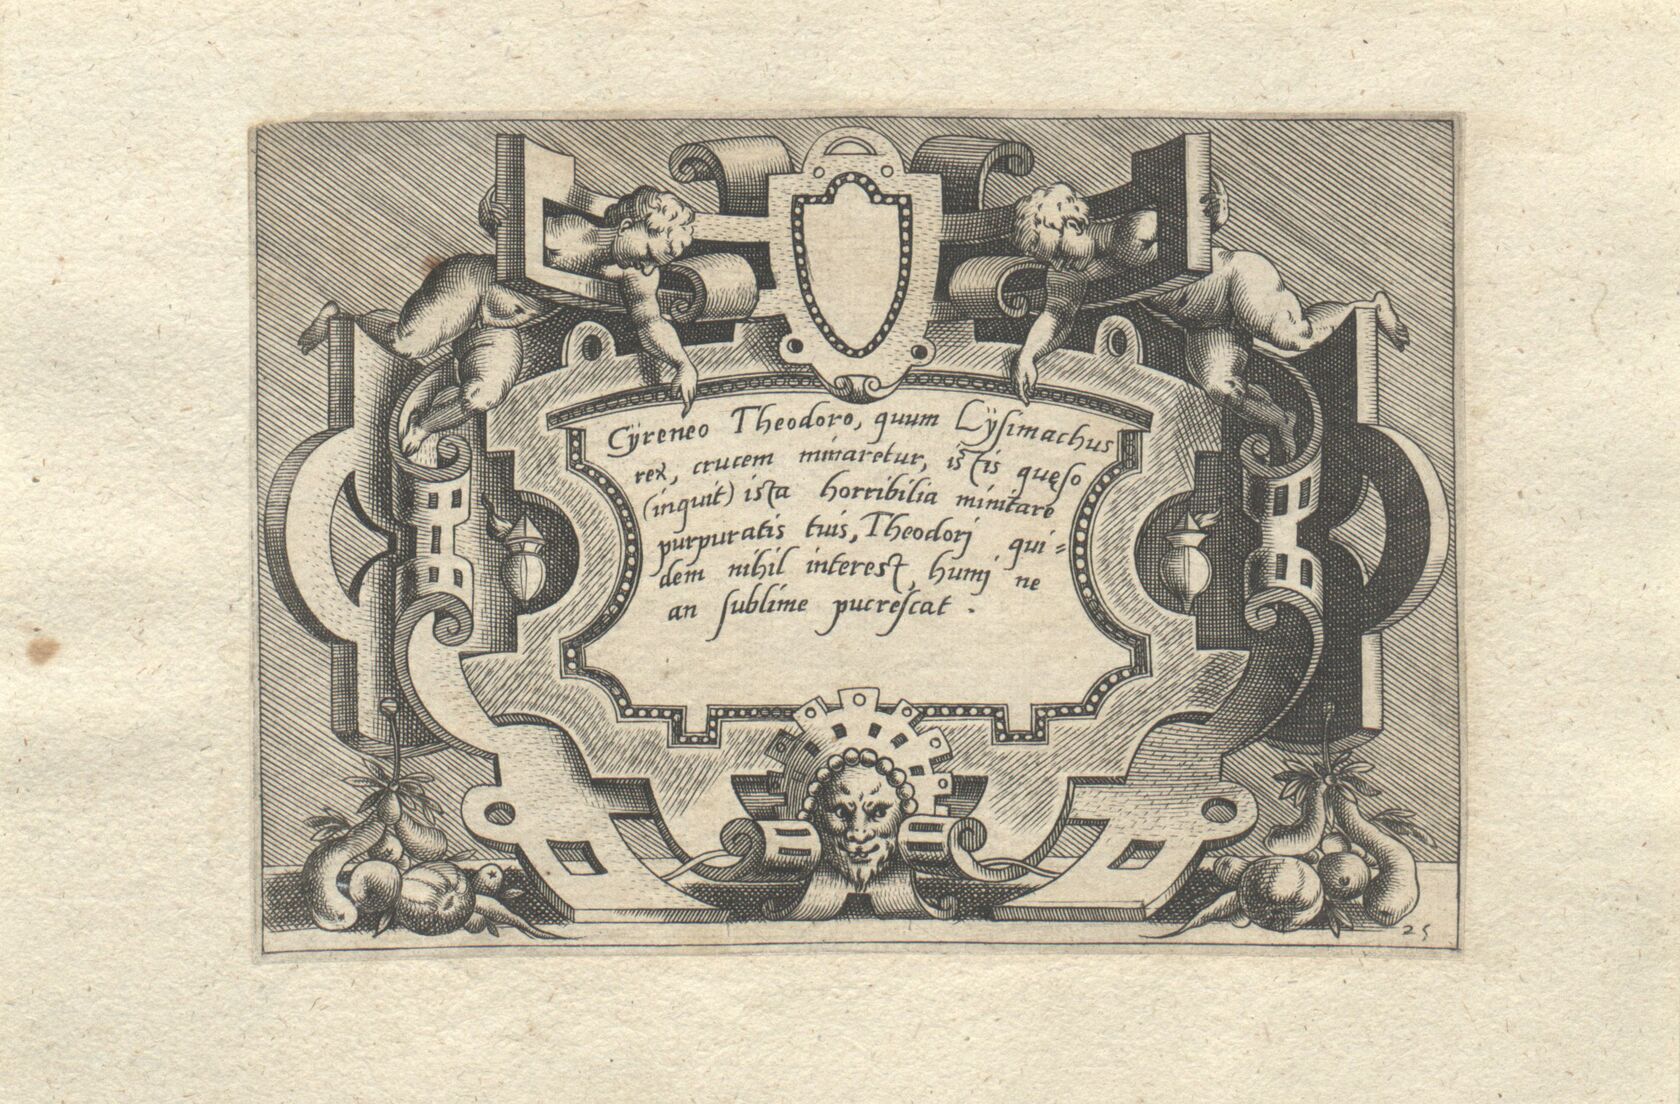 Cÿreneo Theodoro, quum Lÿsimachus
rex, crucem minaretur, istis quęso
(inquit) ista horribilia minitare
purpuratis tuis, Theodorj qui=
dem nihil interest, humj ne
an sublime pucrescat.
25